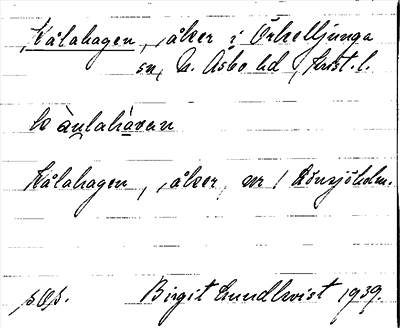 Kålahagen, åker i Örkelljunga
sn, N. Åsbo hd, Krist. l.
kàulahàvan
Kålahagen, åker, nr 1 Lönsjöholm.
s. Q. s. Birgit Lundkvist 1939.